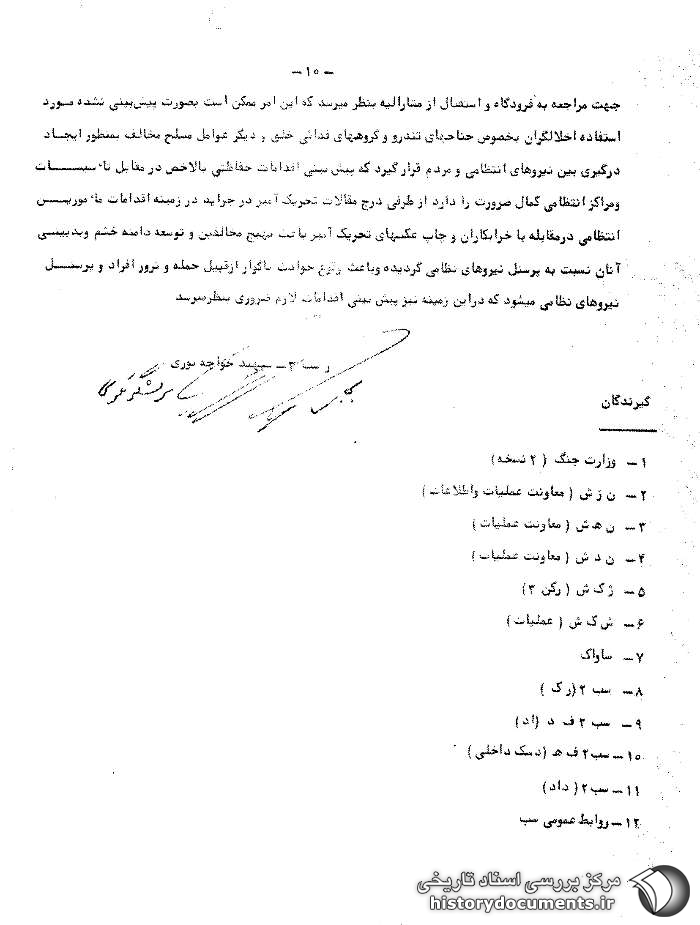 - ۱۰ -
جهت مراجعه به فرودگاه و استقبال از مشارالیه بنظر میرسد که این امر ممکن است بصورت پیش‌بینی نشده مورد
استفاده اخلالگران بخصوص جناحهای تندرو و گروههای فدائی خلق و دیگر عوامل مسلح مخالف بمنظور ایجاد
درگیری بین نیروهای انتظامی و مردم قرار گیرد که پیش بینی اقدامات حفاظتی بالاخص در مقابل تأسیسات
ومراکز انتظامی کمال ضرورت را دارد از طرفی درج مقالات تحریک آمیز در جراید در زمینه اقدامات مأمورین
انتظامی درمقابله با خرابکاران و چاپ عکسهای تحریک آمیز باعث تهییج مخالفین و توسعه دامنه خشم وبدبینی
آنان نسبت به پرسنل نیروهای نظامی گردیده وباعث وقوع حوادث ناگوار ازقبیل حمله و ترور افراد و پرسنل
نیروهای نظامی میشود که دراین زمینه نیز پیش بینی اقدامات لازم ضروری بنظرمیرسد
ر سب ۳ - سپهبد خواجه نوری
گیرندگان
۱ - وزارت جنگ ( ۲ نسخه)
۲ - ن ز ش ( معاونت عملیات واطلاعات )
۳ - ن ه ش ( معاونت عملیات )
۴ - ن د ش ( معاونت عملیات )
۵ - ژ ک ش ( رکن ۳)
۶ - ش ک ش ( عملیات)
۷ - ساواک
۸ - سب ۲ (رک )
۹ - سب ۲ ف د (اد)
۱۰ - سب۲ ف ه (دمک داخلی )
۱۱ - سب۲ ( داد)
۱۲ - روابط عمومی سب
مرکز بررسی اسناد تاریخی
historydocuments.ir